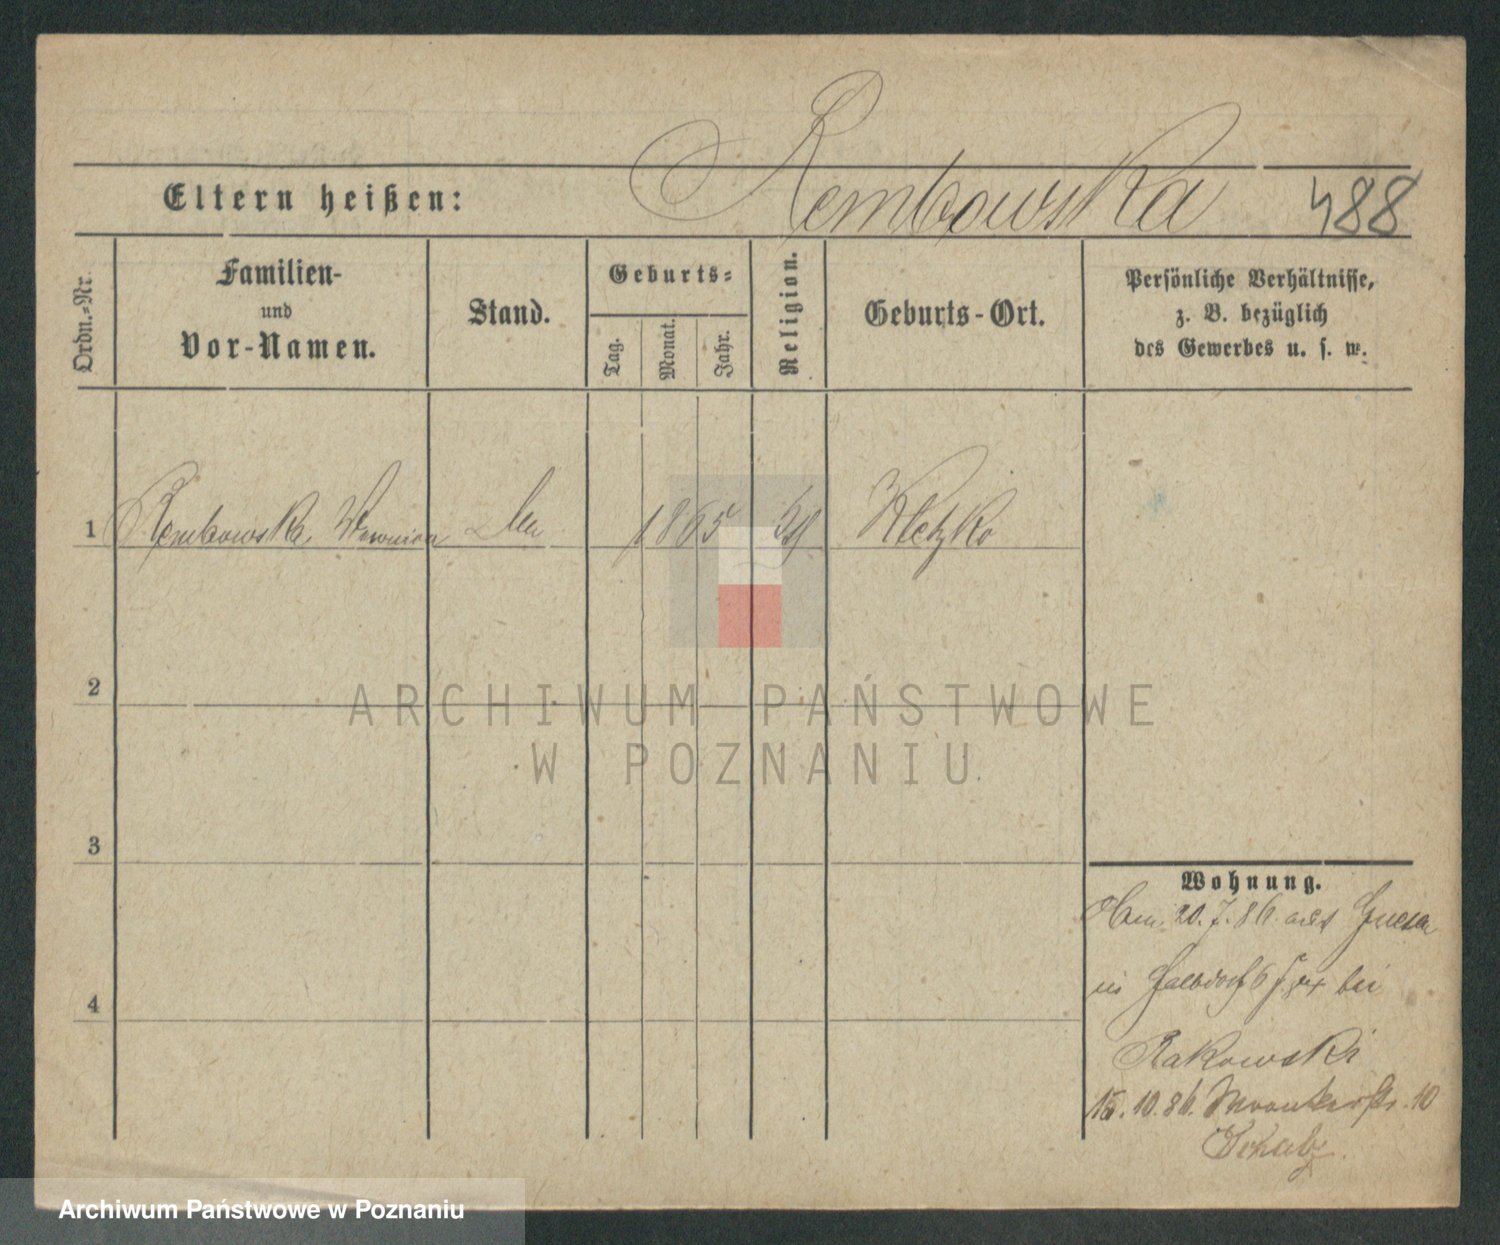 Rembowska 488
Eltern heißen:
Ordn.-Nr.
Familien-
und
Vor-Namen.
Stand.
Geburts-
Tag.
Monat.
Jahr.
Religion.
Geburts-Ort.
Persönliche Verhältnisse,
z. B. bezüglich
des Gewerbes u. s. w.
1 Rembowska, 1865 Kletzko
2
ARCHIWUM PAŃSTWOWE
W POZNANIU
3
4
Wohnung.
20.7.86. aus Gnesen
bei
Rakowski
15.10.86. 10
Archiwum Państwowe w Poznaniu